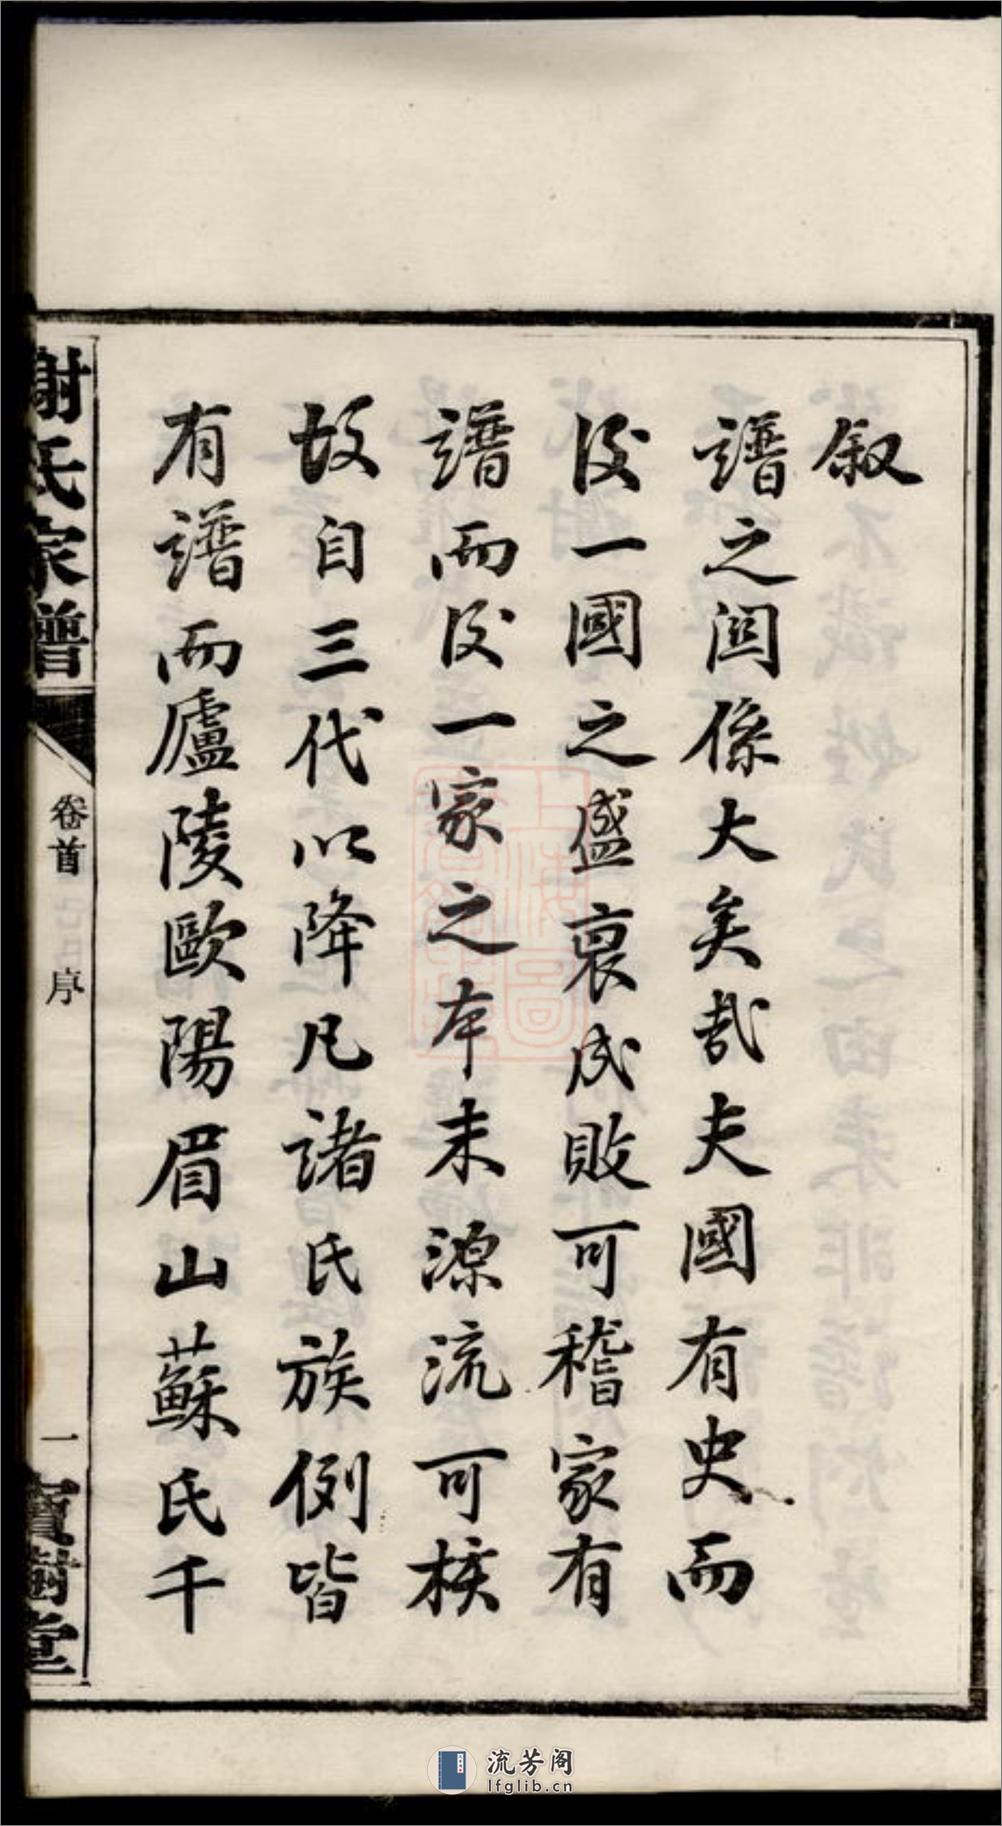 叙
譜之関係大矣哉夫國有史而
後一國之盛衰成敗可稽家有
譜而後一家之本末源流可核
故自三代以降凡諸氏族例皆
有譜而廬陵歐陽眉山蘇氏千
謝氏家譜
卷首
序
一
寶樹堂
流芳阁
lfglib.cn